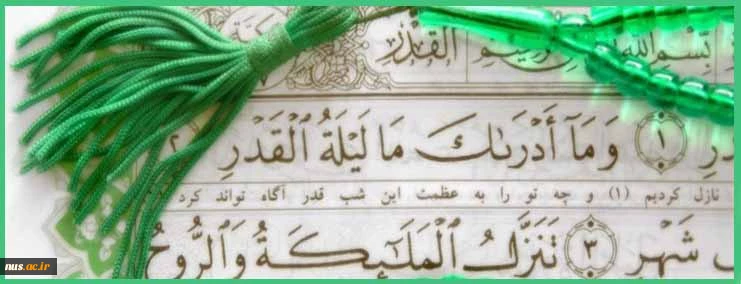 بِسْمِ اللَّهِ
القَدْرِ
١ وَمَآ أَدْرَىٰكَ مَا لَيْلَةُ ٱلْقَدْرِ ٢
نازل کردیم (۱) و چه تو را به عظمت این شب قدر آگاه تواند کرد
شَهْرٍ ٣ تَنَزَّلُ ٱلْمَلَٰٓئِكَةُ وَٱلرُّوحُ
nus.ac.ir